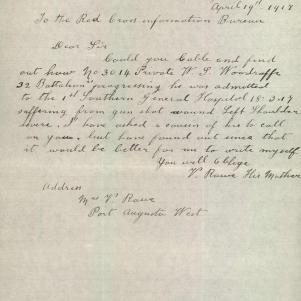 April 19th 1917
To the Red Cross information Bureau
Dear Sir
Could you Cable and find
out how No 3014 Private W. S. Woodroffe
32 Battalion progressing he was admitted
to the 1st Southern General Hospital 18.3.17
suffering from gun shot wound Left Shoulder
severe. I have asked a cousin of his to call
on you. but have found out since that
it would be better for me to write myself
You will Oblige
V. Rowe His Mother
Address
Mrs V. Rowe
Port Augusta West